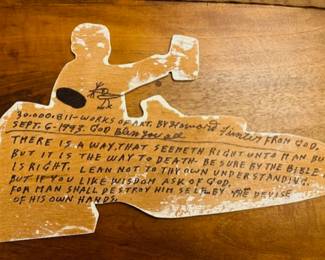 30.000.811-WORKS OF ART. BY HOWARD FINSTER FROM GOD.
SEPT. 6-1993. GOD Bless you all
THERE IS A WAY, THAT SEEMETH RIGHT UNTO MAN BU
BUT IT IS THE WAY TO DEATH. BE SURE BY THE BIBLE
IS RIGHT. LEAN NOT TO THY OWN UNDERSTANDING.
BUT IF YOU LIKE WISDOM ASK OF GOD.
FOR MAN SHALL DESTROY HIM SELF BY THE DEVISE
OF HIS OWN HANDS.